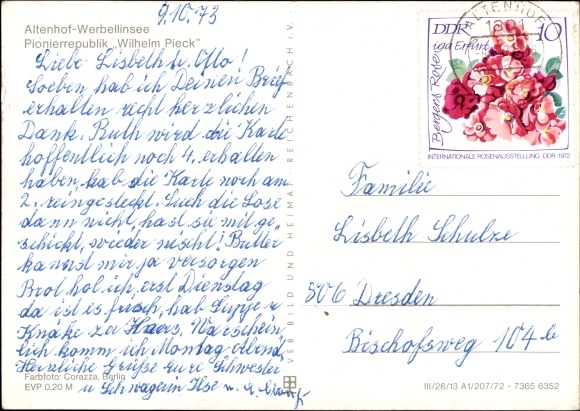 9.10.73
Altenhof-Werbellinsee
Pionierrepublik „Wilhelm Pieck"
Liebe Lisbeth u. Otto!
Soeben hab ich Deinen Brief
erhalten recht herzlichen
Dank. Ruth wird die Karte
hoffentlich noch 4. erhalten
haben, hab die Karte noch am
2. reingesteckt. Such die Lose
dann nicht, hast sie mit ge-
schickt, wieder nischt! Butter
kannst mir ja versorgen
Brot hol ich erst Dienstag
da ist es frisch, hab
Knäke zu Haus. Warschein
lich komm ich Montag Abend
Herzliche Grüße eure Schwester
u Schwägerin Ilse u.
Farbfoto: Corazza, Berlin
EVP 0,20 M
VEB BILD UND HEIMAT REICHENBACH i.V.
ALTENHOF
DDR
10
iga Erfurt
Bergers Rose
INTERNATIONALE ROSENAUSSTELLUNG · DDR · 1972
Familie
Lisbeth Schulze
806 Dresden
Bischofsweg 104 b
III/26/13 A1/207/72 - 7365 6352